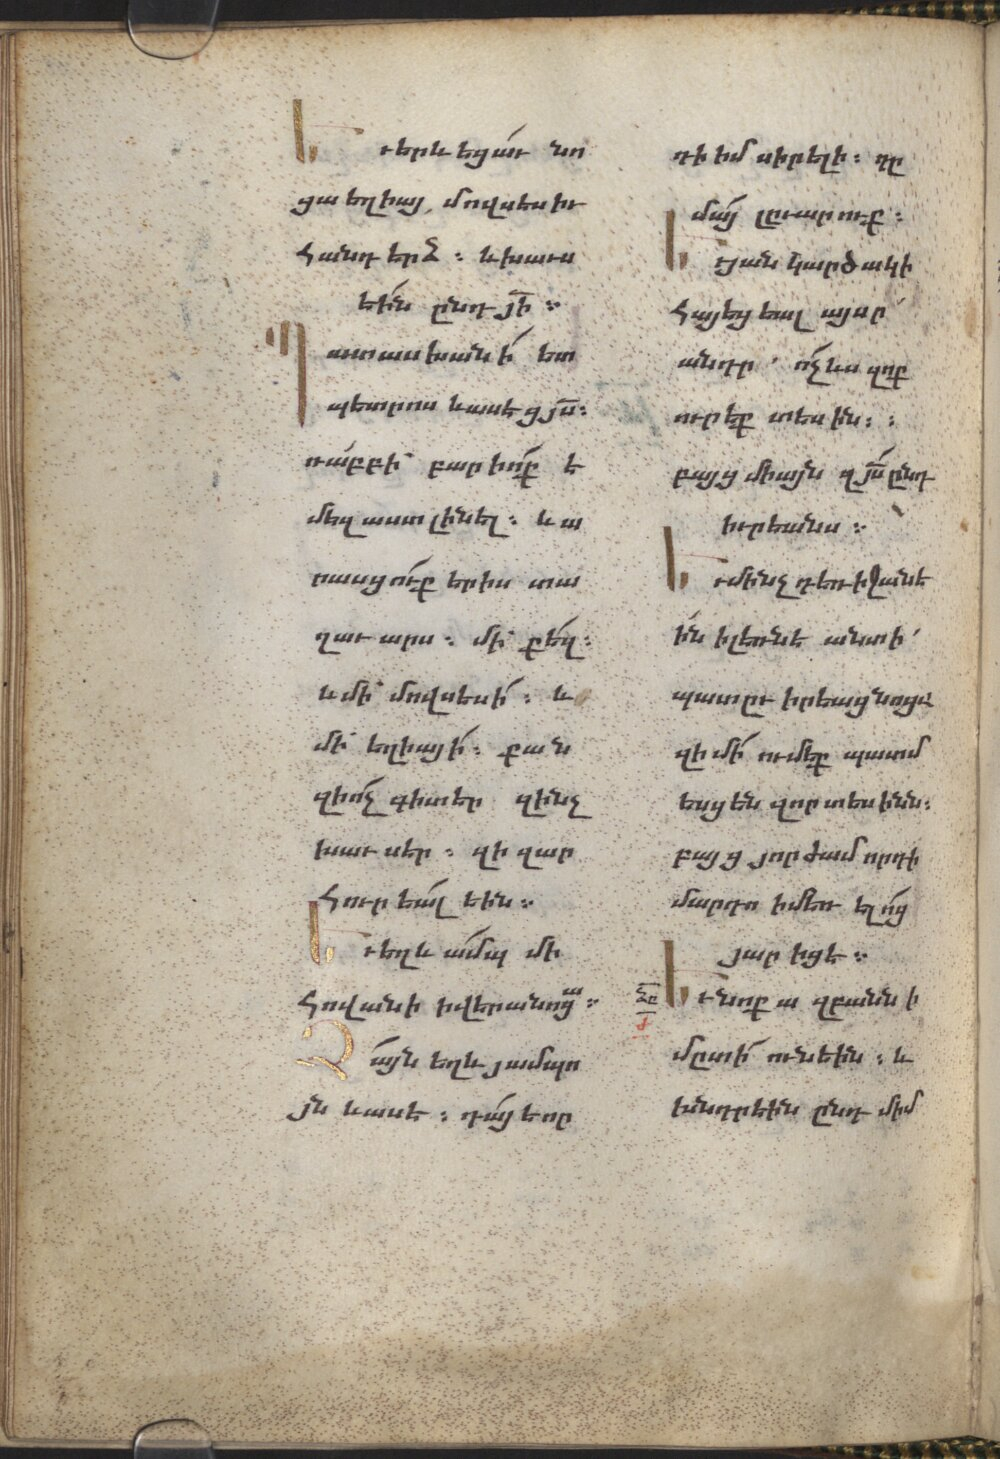 Եւ երևեցաւ նո
ցա եղիայ, մովսեսիւ
հանդերձ ։ և խաւս
եին ընդ յի ։
Պատասխանի ետ
պետրոս և ասէ ցյս ։
ռաբբի՝ բարիոք է
մեզ աստ լինել ։ և ա
րասցուք երիս տա
ղաւարս ։ մի՝ քեզ ։
և մի՝ մովսեսի ։ և
մի՝ եղիայի ։ քան
զի ոչ գիտեր զինչ
խաւսեր ։ զի զար
հուրեալ եին ։
Եւ եղև ամպ մի
հովանի ի վերա նոցա ։
Ձայն եղև յամպո
յն և ասէ ։ դայ է որ
դի իմ սիրելի ։ դը
մայ լըւարուք ։
Եւ յանկարծակի
հայեցեալ այսր՝
անդր՝ ոչ ևս զոք
ուրեք տեսին ։
բայց միայն զյս ընդ
իւրեանս ։
Եւ մինչդեռ իջանե
ին ի լեռնէ անտի՝
պատըւիրեաց նոցա
զի մի ումեք պատմ
եսցեն զոր տեսինն ։
բայց յորժամ որդի
մարդո ի մեռելոց
յարիցէ ։
Եւ նոքա զբանն ի
մըտի ունեին ։ և
խնդրեին ընդ միմ